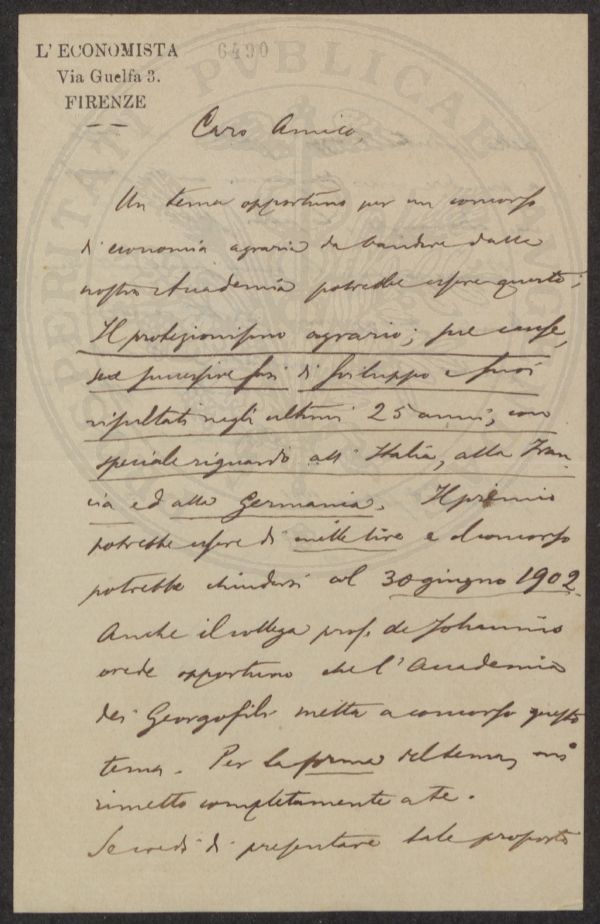 L' ECONOMISTA
Via Guelfa 3.
FIRENZE
6490
PERITATI PVBLICAE
Caro Amico,
Un tema opportuno per un concorso
di economia agraria da bandire dalla
nostra Accademia potrebbe essere questo:
Il protezionismo agrario; sue cause,
sue successive fasi di sviluppo e suoi
risultati negli ultimi 25 anni, con
speciale riguardo all' Italia, alla Fran-
cia ed alla Germania. Il premio
potrebbe essere di mille lire e il concorso
potrebbe chiudersi al 30 giugno 1902.
Anche il collega prof. de Johannis
crede opportuno che l'Accademia
dei Georgofili metta a concorso questo
tema. Per la forma del tema, mi
rimetto completamente a te.
Se credi di presentare tale proposta